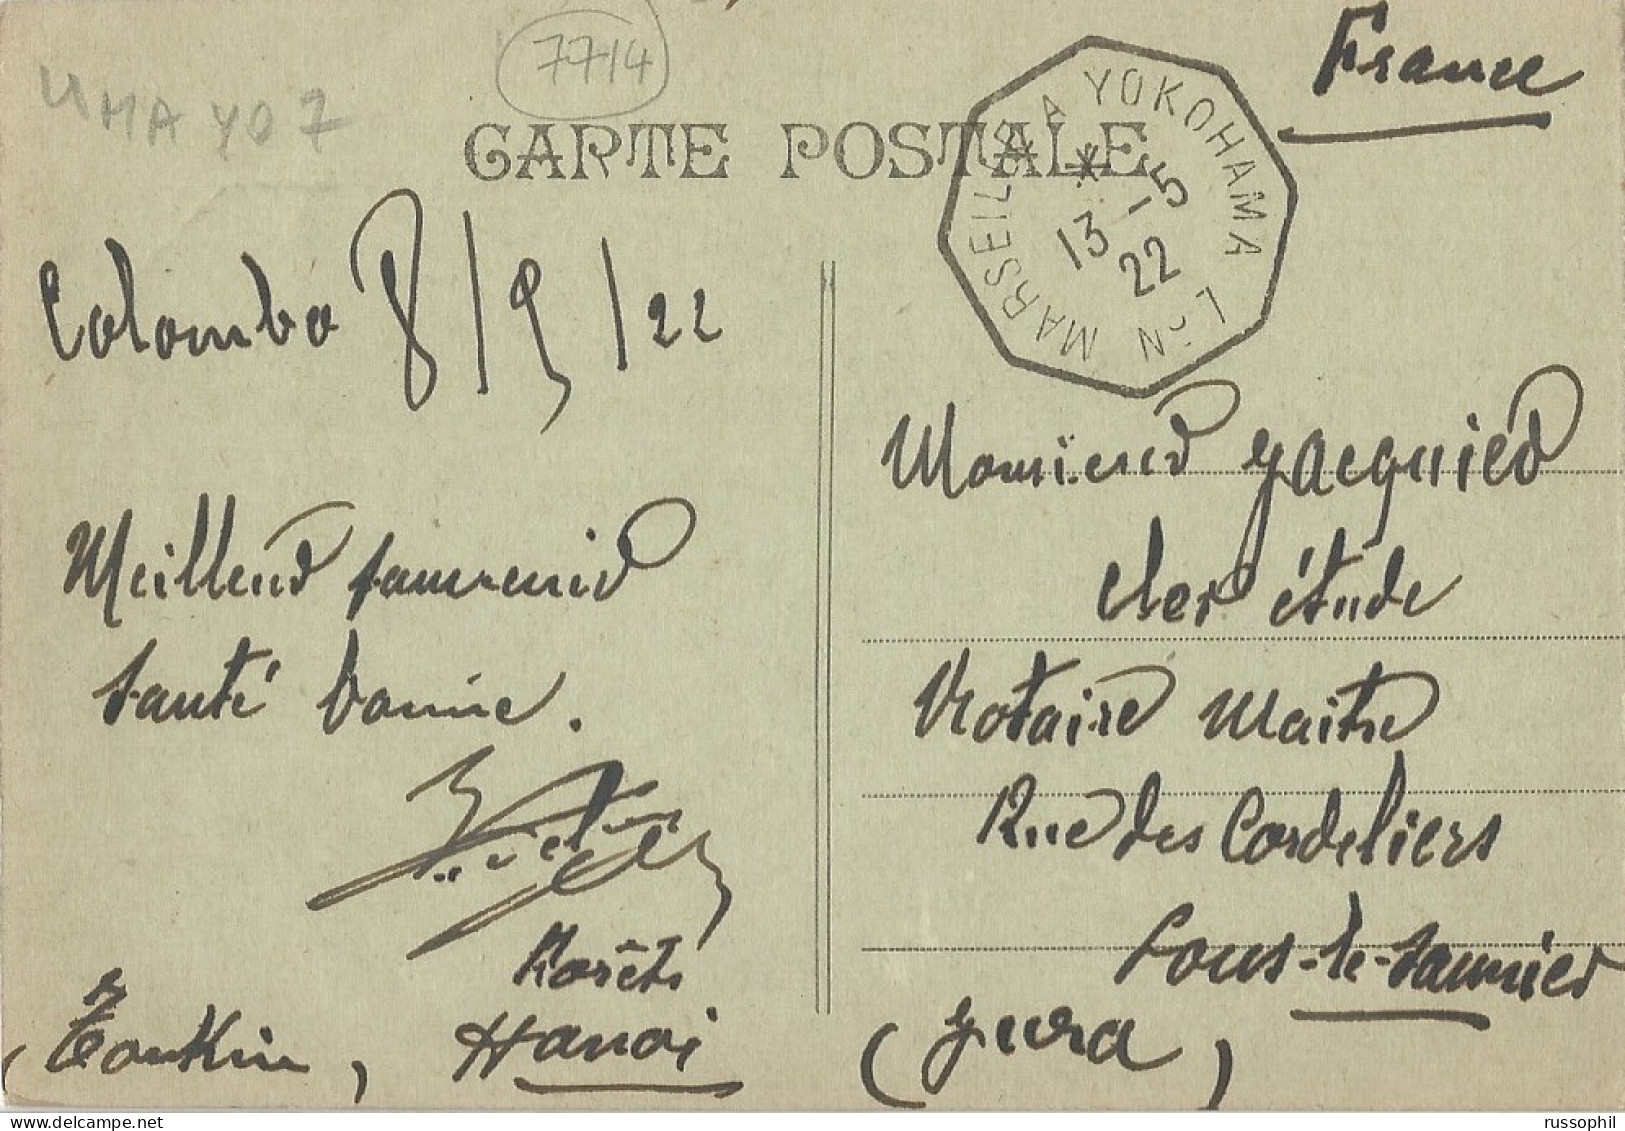 7714
France
CARTE POSTALE
MARSEILLE A YOKOHAMA
13 -5
22
LⁿN
Colombo 8/5/22
Meilleur souvenir
santé bonne.
Forêts
(Tonkin, Hanoi
Monsieur Jacquier
clerc étude
Notaire Maitre
12 Rue des Cordeliers
Lons-le-Saunier
(Jura)
russophil